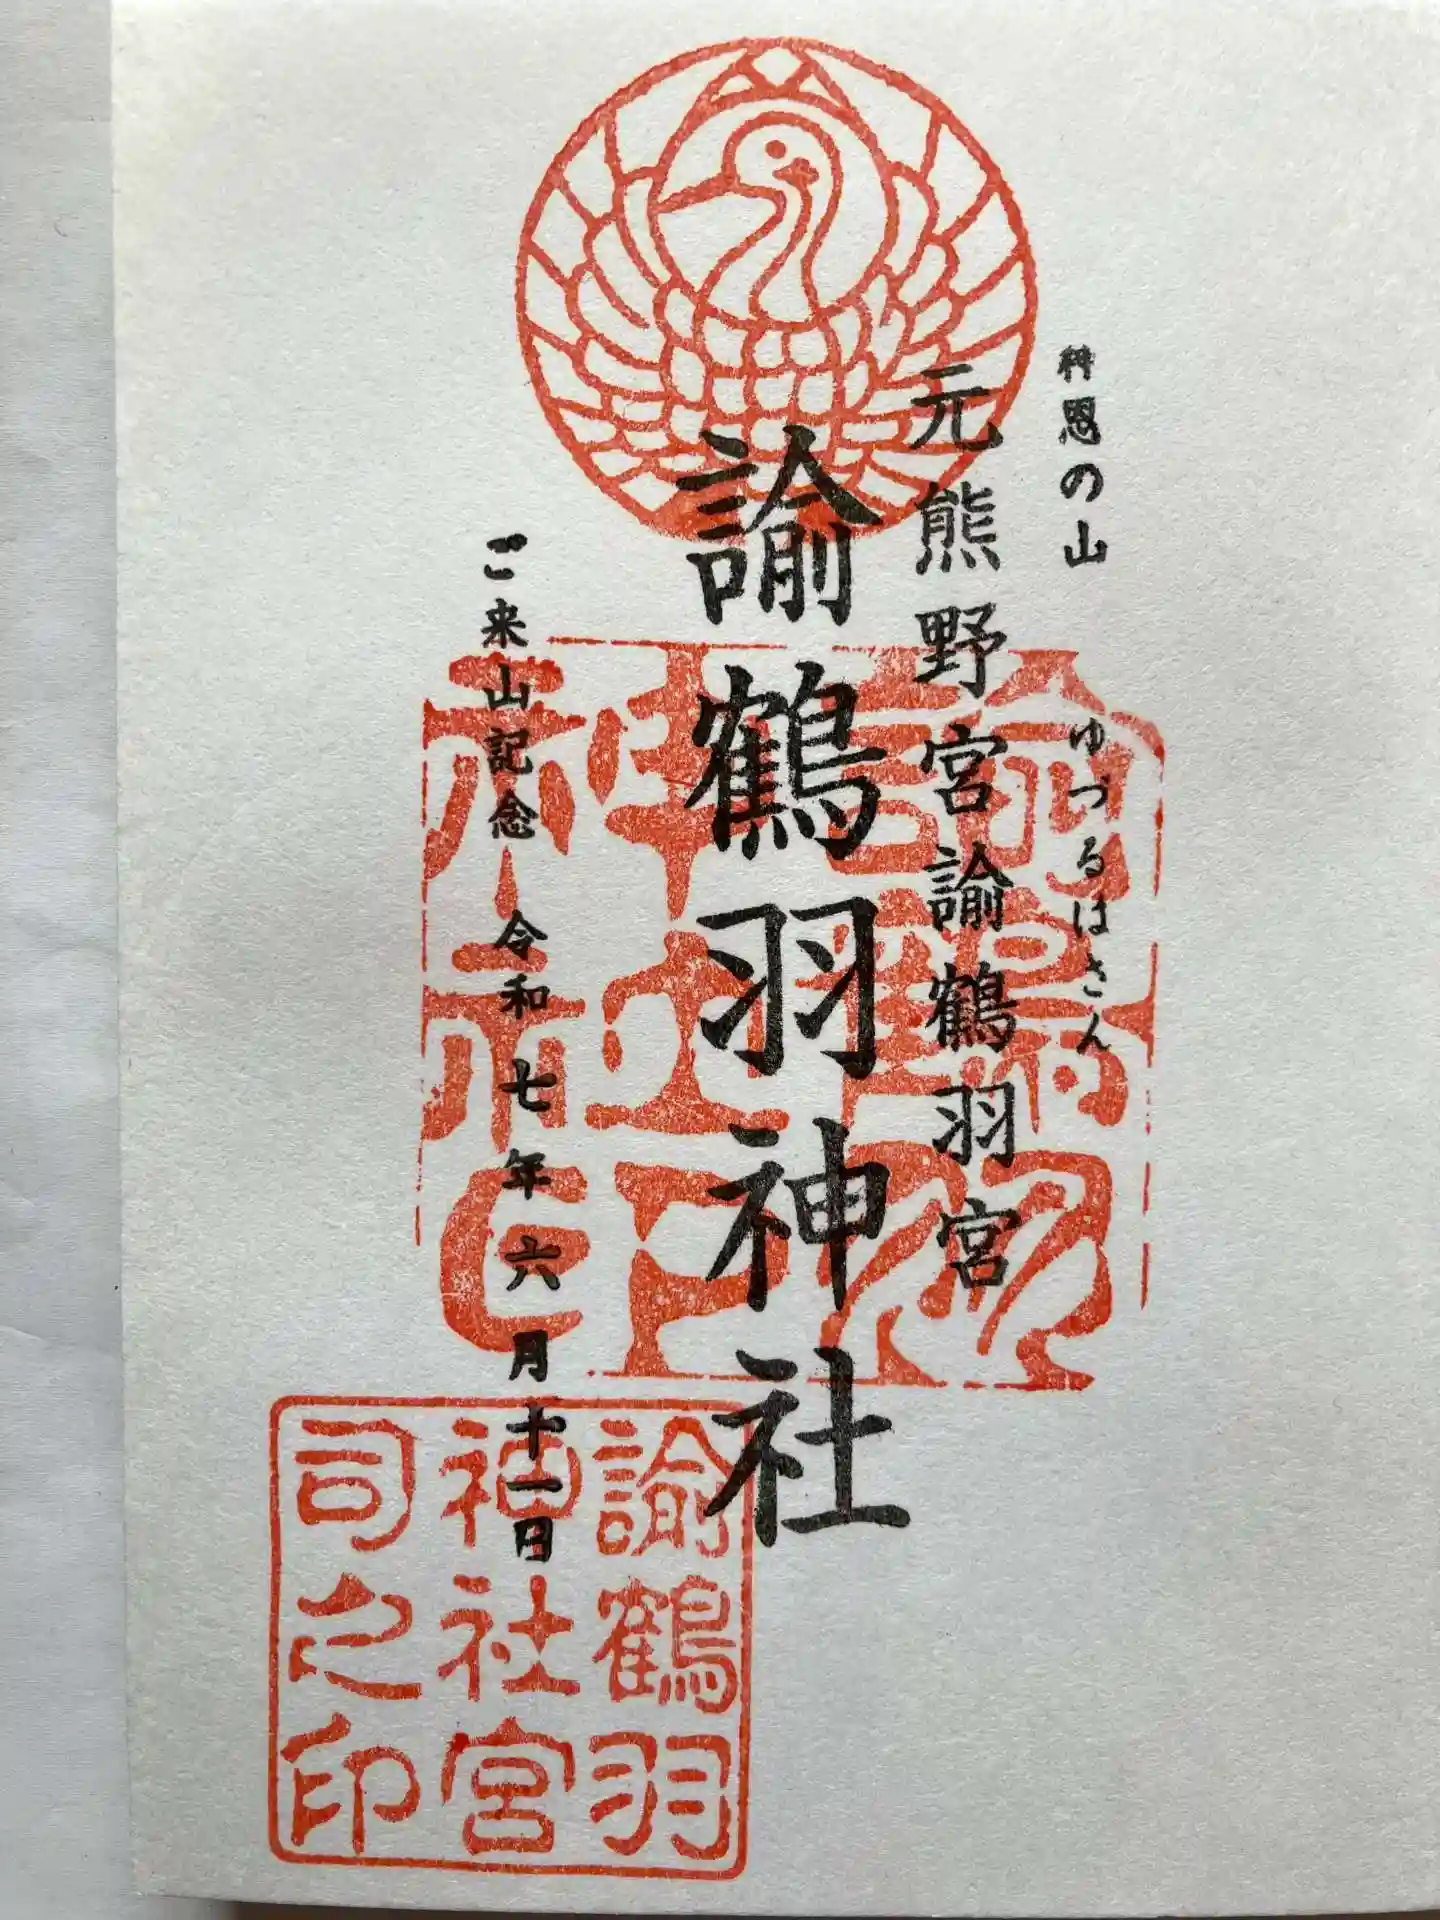 神恩の山
ゆづるはさん
元熊野宮諭鶴羽宮
諭鶴羽神社
ご来山記念 令和七年六月十一日
諭鶴羽
神社之印
諭鶴羽
神社宮
司之印